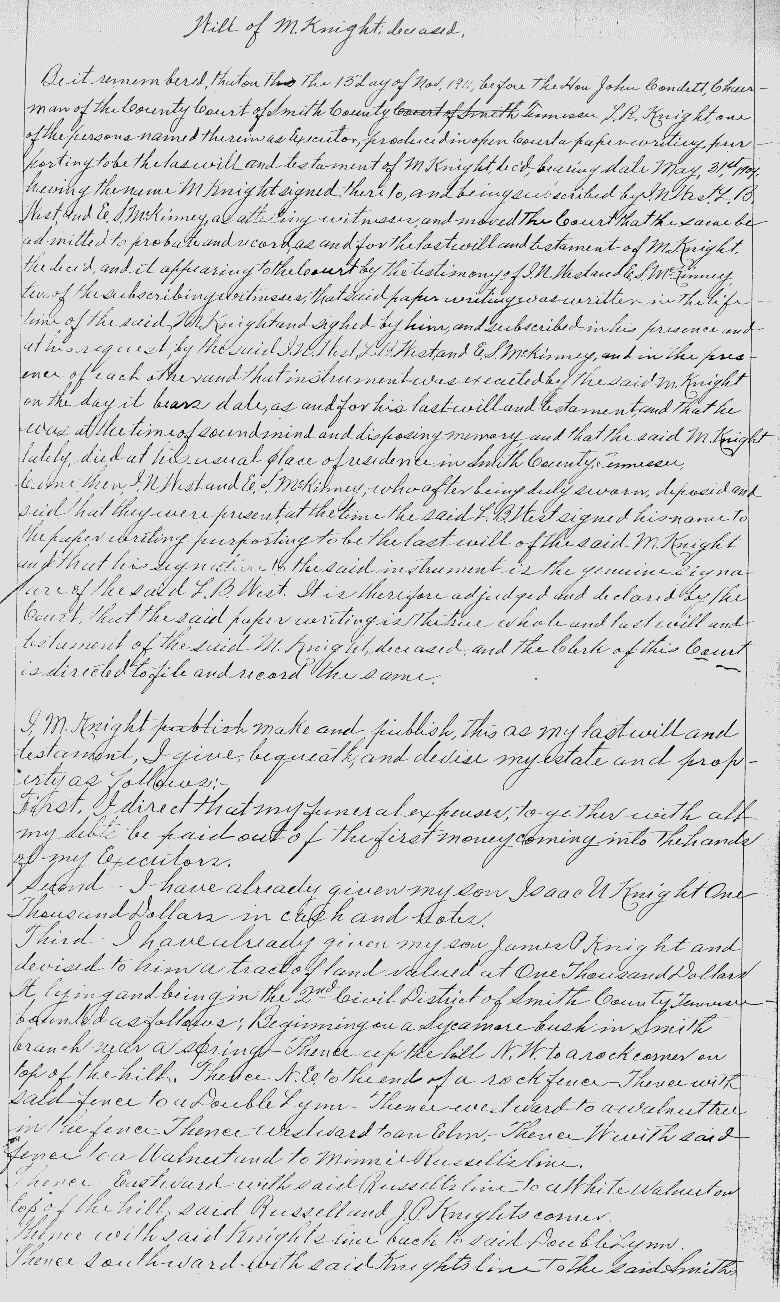 Will of M. Knight, deceased.
Be it remembered, that on the the 15 day of Nov, before the Hon John Condett, Chair-
man of the County Court of Smith County Court of Smith Tennessee L. B. Knight one
of the persons named therein as Executor, produced in open Court a paper writing, pur-
porting to be the last will and testament of M. Knight, decd, bearing date May, 21st
having the name M Knight signed thereto, and being subscribed by I. N. West, L. B.
West, and E, S, McKinney, as attesting witnesses, and moved the Court that the same be
admitted to probate and record, as and for the last will and testament of M. Knight,
the decd, and it appearing to the Court by the testimony of I. N West and E. S, McKinney,
two of the subscribing witnesses, that said paper writing was written in the life
time of the said, M. Knight and signed by him, and subscribed in his presence and
at his request, by the said I. N. West L. B. West and E, S McKinney, and in the pres-
ence of each other and that instrument was executed by the said M. Knight
on the day it bears date, as and for his last will and testament, and that he
was at the time of sound mind and disposing memory and that the said M. Knight
lately, died at his usual place of residence in Smith County, Tennessee,
Came then I. N West and E, S McKinney, who after being duly sworn, deposid and
said that they were present at the time the said L. B West signed his name to
the paper writing purporting to be the last will of the said M. Knight
and that his signature to the said instrument is the genuine signa-
ure of the said L. B West. It is therefore adjudged and declared by the
Court, that the said paper writing is the true whole and last will and
testament of the said M. Knight, deceased, and the Clerk of this Court
is directed to file and record the same.
I, M. Knight publish make and, publish, this as my last will and
testament, I give, bequeath, and devise my estate and prop-
erty as follows:-
First, I direct that my funeral expenses, together with all
my debts be paid out of the first money coming into the hands
of my Executors.
Second - I have already given my son Isaac N Knight One
Thousand Dollars in cash and notes.
Third - I have already given my son James P Knight and
devised to him a tract of land valued at One Thousand Dollars
lying and being in the 2nd Civil District of Smith County Tennessee
bounded as follows; Beginning on a Sycamore bush in Smith
branch near a spring - Thence up the hill N. W. to a rock corner on
top of the hill. Thence N. E, to the end of a rock fence - Thence with
said fence to a Double Lynn - Thence westward to a walnut tree
in the fence - Thence westward to an Elm, - Thence W with said
fence to a Walnut and to Minnie Russell's line.
Thence Eastward with said Russell's line to a White Walnut on
top of the hill, said Russell and J. P. Knights corner.
Thence with said Knight's line back to said Double Lynn.
Thence southward with said Knights line to the said Smiths